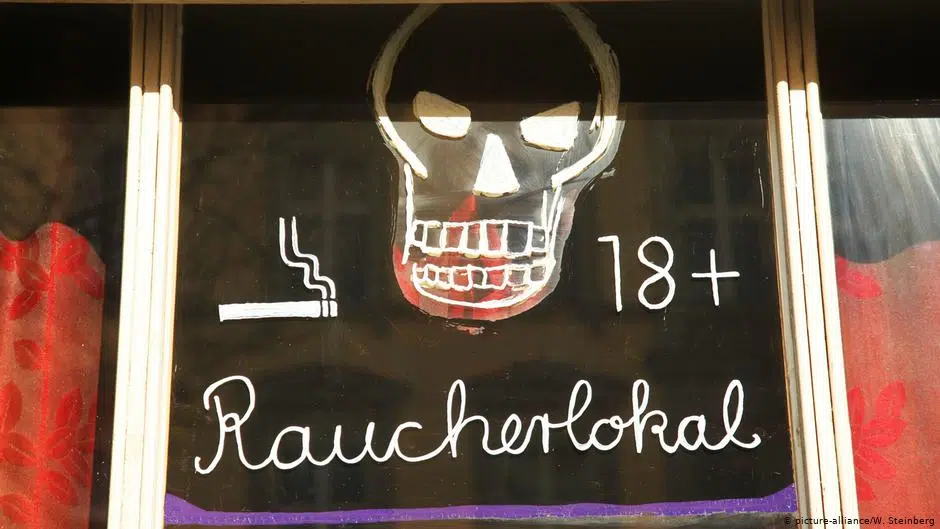 18+
Raucherlokal
© picture-alliance/W. Steinberg